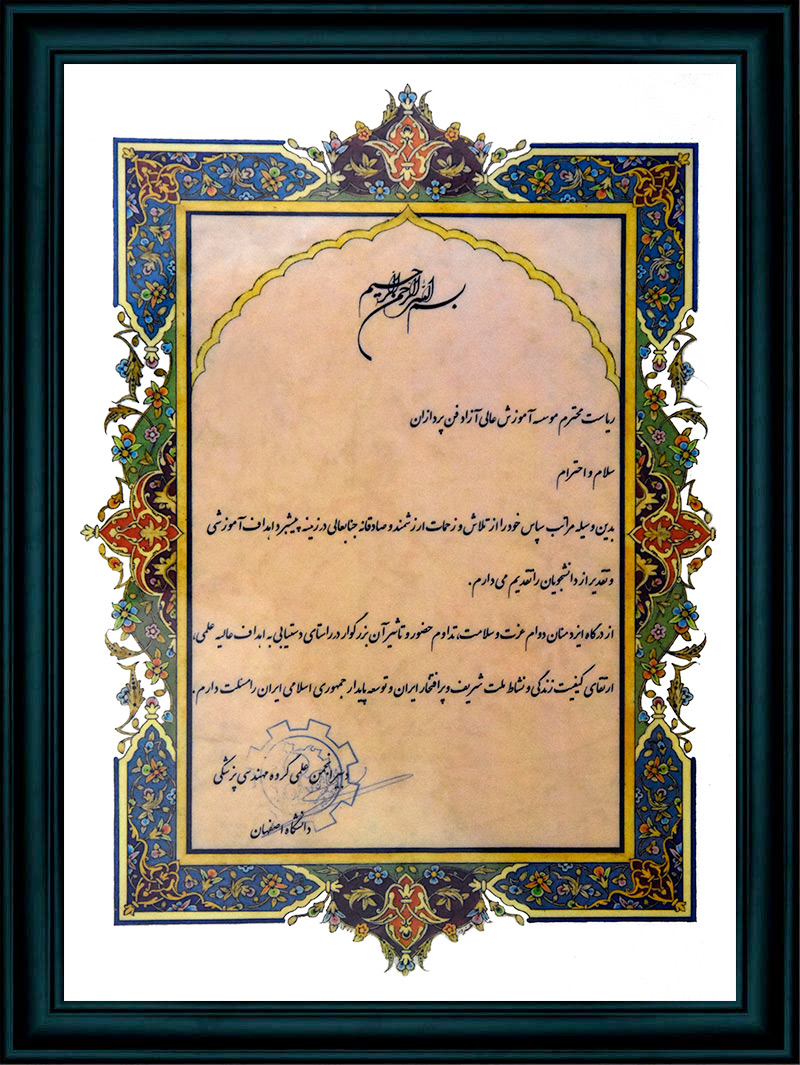 بسم الله الرحمن الرحیم
ریاست محترم موسسه آموزش عالی آزاد فن پردازان
سلام و احترام
بدین وسیله مراتب سپاس خود را از تلاش و زحمات ارزشمند و صادقانه جنابعالی در زمینه پیشبرد اهداف آموزشی
و تقدیر از دانشجویان را تقدیم می دارم.
از درگاه ایزد منان دوام عزت و سلامت، تداوم حضور و تاثیر آن بزرگوار در راستای دستیابی به اهداف عالیه علمی،
ارتقای کیفیت زندگی و نشاط ملت شریف و پرافتخار ایران و توسعه پایدار جمهوری اسلامی ایران را مسئلت دارم.
دبیر انجمن علمی گروه مهندسی پزشکی
دانشگاه اصفهان